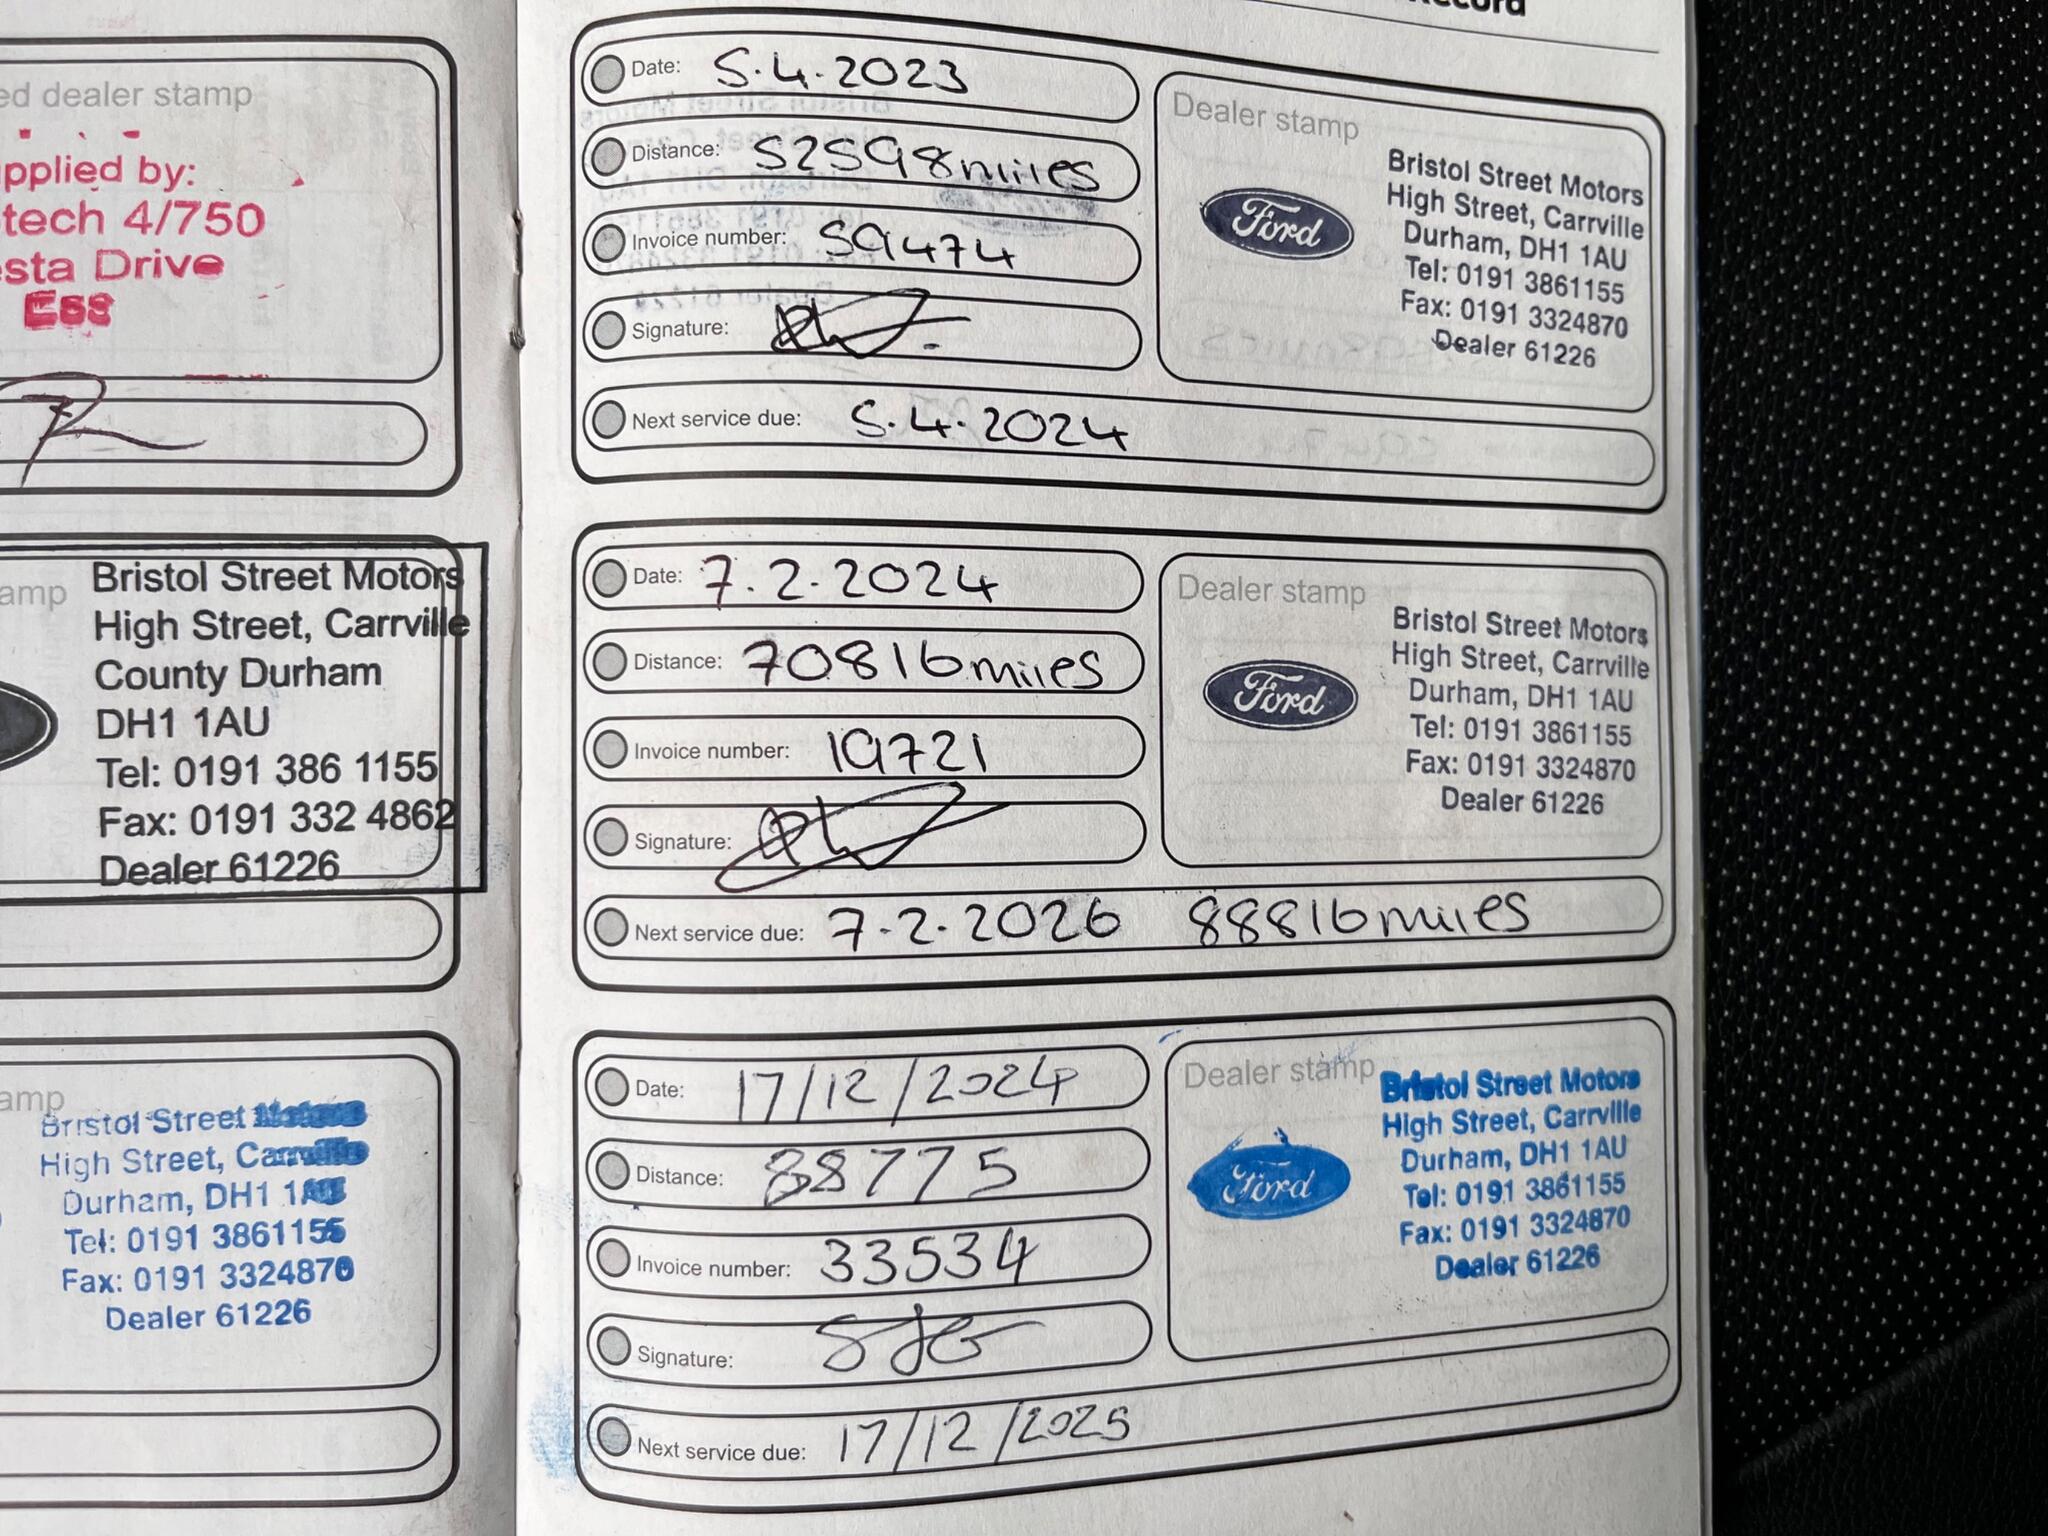 ed dealer stamp
pplied by:
tech 4/750
esta Drive
E68
amp
Bristol Street Motors
High Street, Carrville
County Durham
DH1 1AU
Tel: 0191 386 1155
Fax: 0191 332 4862
Dealer 61226
amp
Bristol Street Motors
High Street, Carrville
Durham, DH1 1AU
Tel: 0191 3861155
Fax: 0191 3324870
Dealer 61226
Record
Date: 5.4.2023
Distance: 52598 miles
Invoice number: 59474
Signature:
Next service due: 5.4.2024
Dealer stamp
Ford
Bristol Street Motors
High Street, Carrville
Durham, DH1 1AU
Tel: 0191 3861155
Fax: 0191 3324870
Dealer 61226
Date: 7.2.2024
Distance: 70816 miles
Invoice number: 19721
Signature:
Next service due: 7.2.2026 88816 miles
Dealer stamp
Ford
Bristol Street Motors
High Street, Carrville
Durham, DH1 1AU
Tel: 0191 3861155
Fax: 0191 3324870
Dealer 61226
Date: 17/12/2024
Distance: 88775
Invoice number: 33534
Signature:
Next service due: 17/12/2025
Dealer stamp
Ford
Bristol Street Motors
High Street, Carrville
Durham, DH1 1AU
Tel: 0191 3861155
Fax: 0191 3324870
Dealer 61226